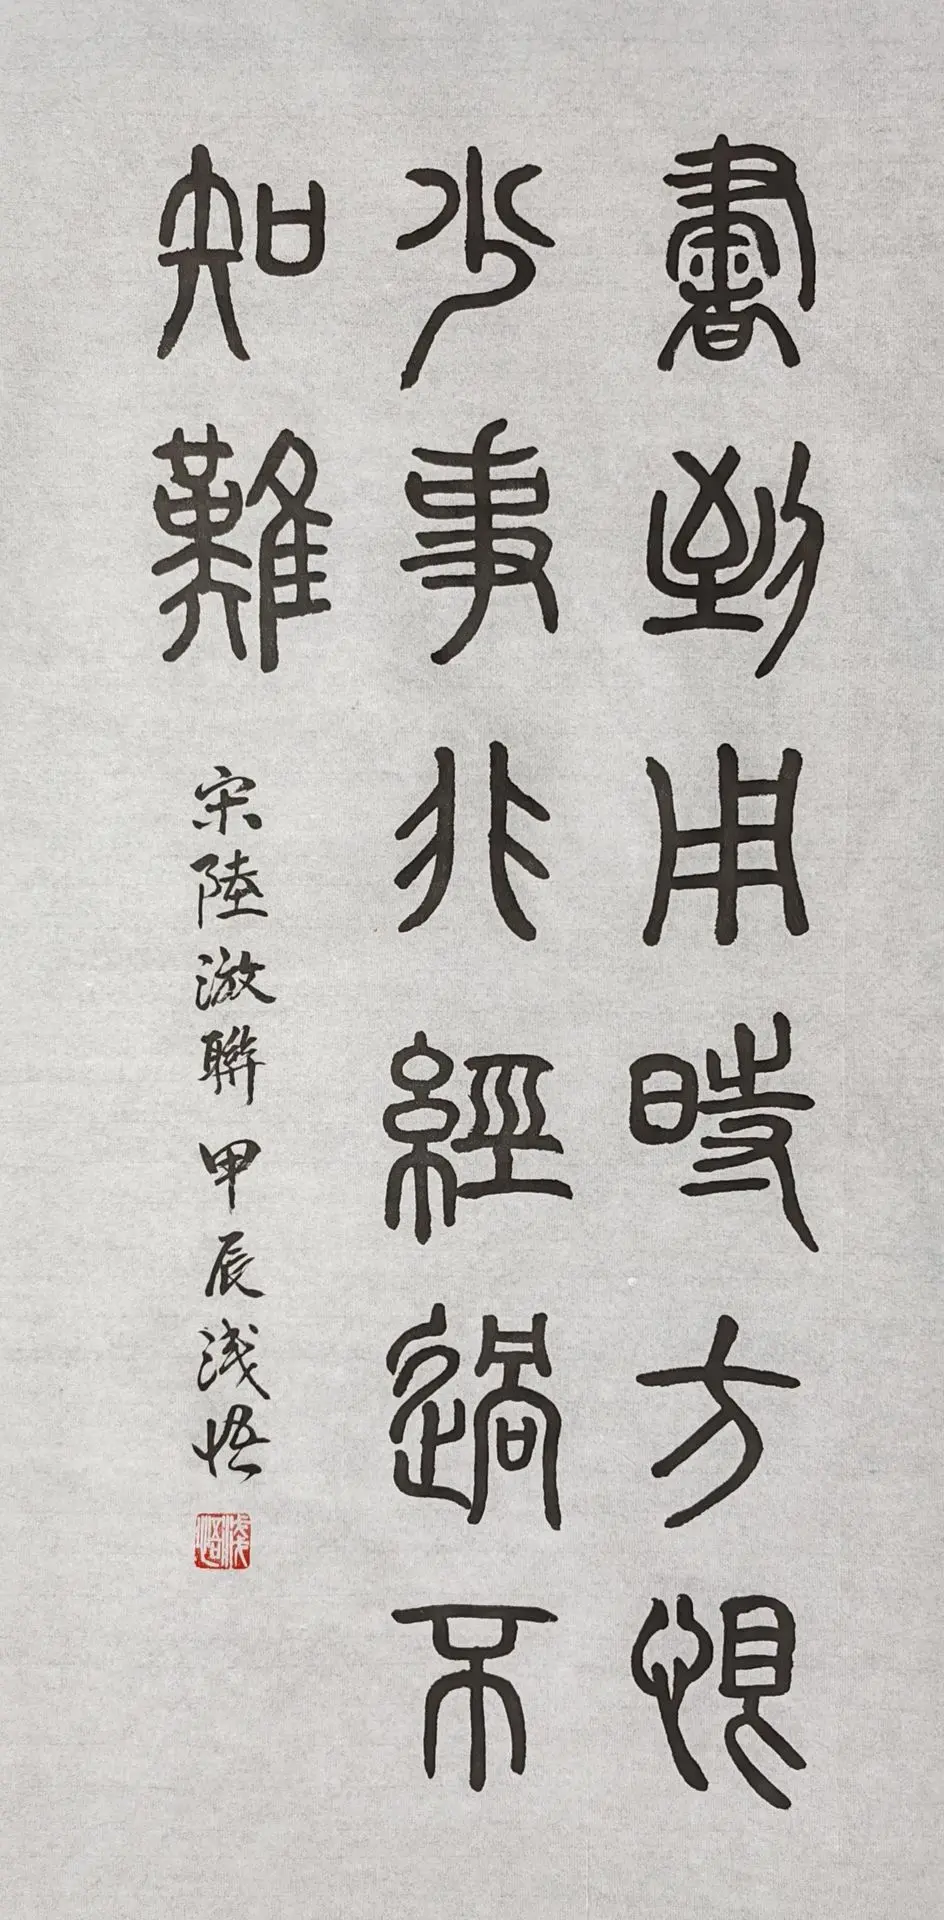 書到用時方恨
少事非經過不
知難
宋陸游聯 甲辰淺悟
淺悟